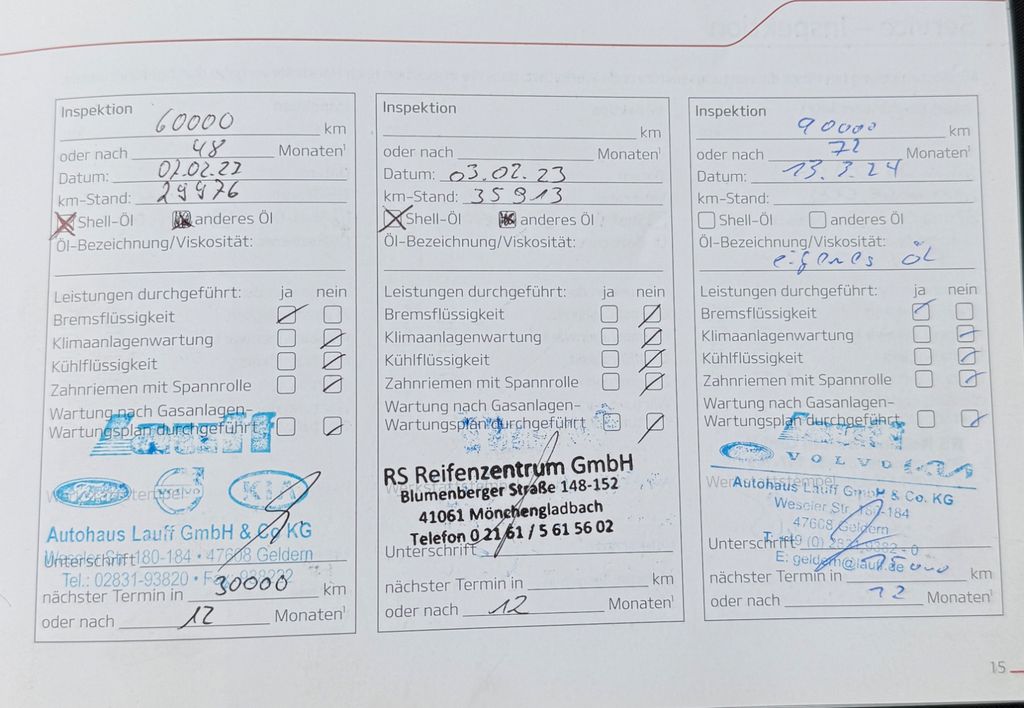 Inspektion
60000 km
oder nach 48 Monaten¹
Datum: 07.02.22
km-Stand: 29976
Shell-Öl anderes Öl
Öl-Bezeichnung/Viskosität:
Leistungen durchgeführt: ja nein
Bremsflüssigkeit
Klimaanlagenwartung
Kühlflüssigkeit
Zahnriemen mit Spannrolle
Wartung nach Gasanlagen-
Wartungsplan durchgeführt
Lauff
Ford VOLVO KIA
Autohaus Lauff GmbH & Co KG
Weseler Str. 180-184 • 47608 Geldern
Unterschrift
Tel.: 02831-93820 •
nächster Termin in 30000 km
oder nach 12 Monaten¹
Inspektion
km
oder nach Monaten¹
Datum: 03.02.23
km-Stand: 35913
Shell-Öl anderes Öl
Öl-Bezeichnung/Viskosität:
Leistungen durchgeführt: ja nein
Bremsflüssigkeit
Klimaanlagenwartung
Kühlflüssigkeit
Zahnriemen mit Spannrolle
Wartung nach Gasanlagen-
Wartungsplan durchgeführt
RS Reifenzentrum GmbH
Blumenberger Straße 148-152
41061 Mönchengladbach
Telefon 0 21 61 / 5 61 56 02
Unterschrift
nächster Termin in km
oder nach 12 Monaten¹
Inspektion
90000 km
oder nach 72 Monaten¹
Datum: 13.3.24
km-Stand:
Shell-Öl anderes Öl
Öl-Bezeichnung/Viskosität:
eigenes Öl
Leistungen durchgeführt: ja nein
Bremsflüssigkeit
Klimaanlagenwartung
Kühlflüssigkeit
Zahnriemen mit Spannrolle
Wartung nach Gasanlagen-
Wartungsplan durchgeführt
Lauff
Ford VOLVO KIA
Autohaus Lauff GmbH & Co. KG
Weseler Str. -184
47608 Geldern
Unterschrift
E: geldern@lauff.de
nächster Termin in km
oder nach 12 Monaten¹
15